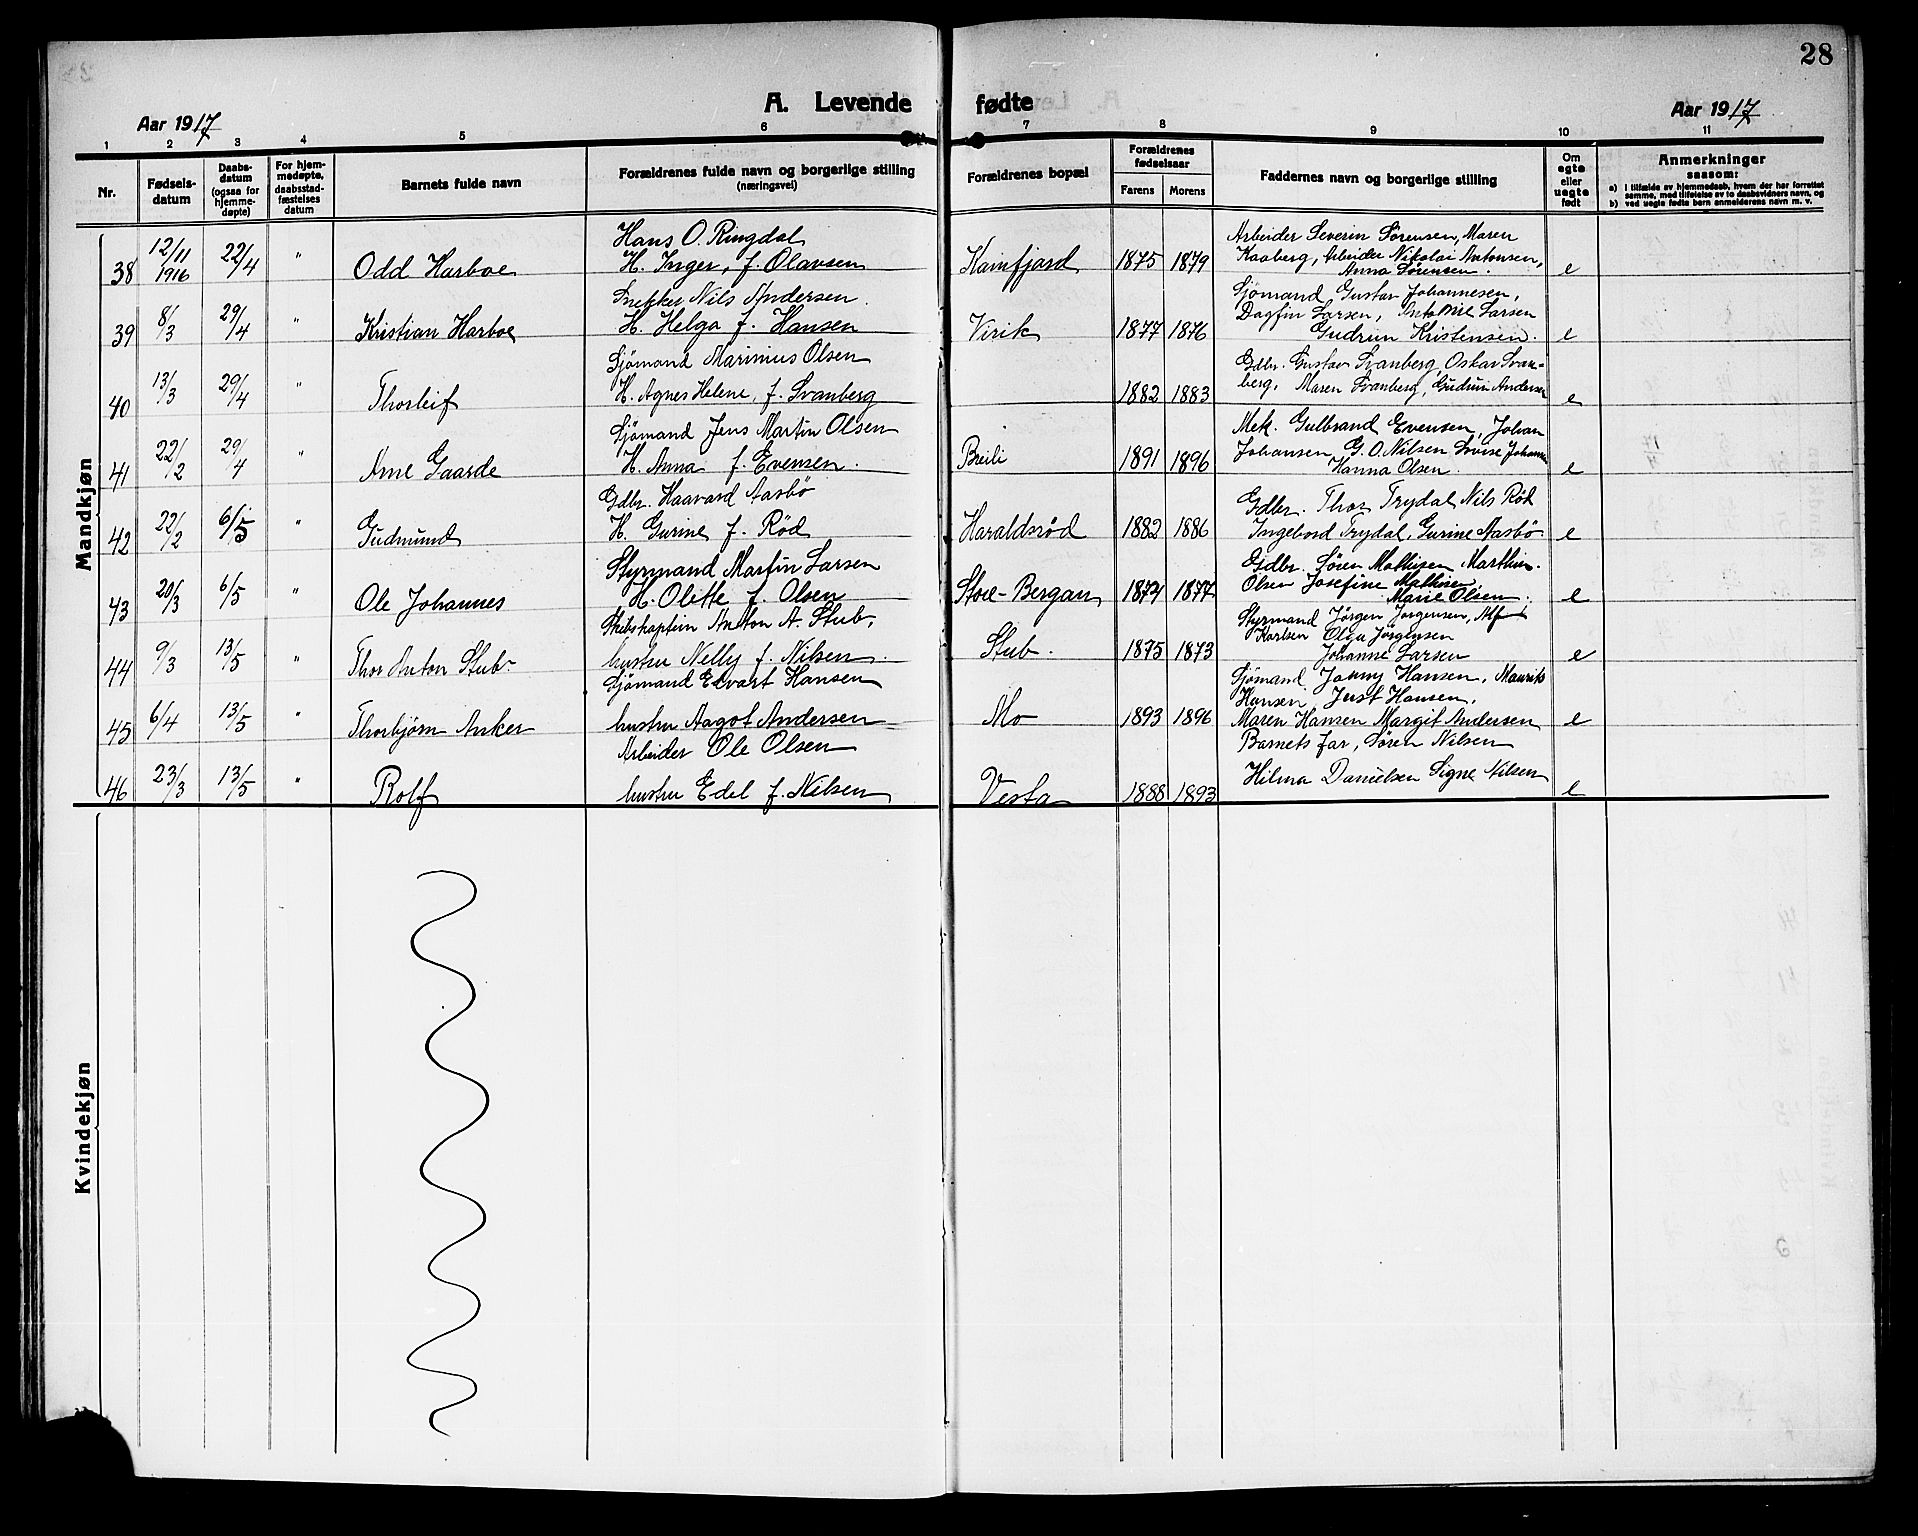 28
A. Levende fødte
Aar 1917
Aar 1917
1 2 3 4 5 6 7 8 9 10 11
Nr.
Fødsels-
datum
Daabs-
datum
(ogsaa for
hjemme-
døpte)
For hjem-
medøpte,
daabsstad-
fæstelses
datum
Barnets fulde navn
Forældrenes fulde navn og borgerlige stilling
(næringsvei)
Forældrenes bopæl
Forældrenes
fødselsaar
Farens Morens
Faddernes navn og borgerlige stilling
Om
egte
eller
uegte
født
Anmerkninger
saasom:
a) i tilfælde av hjemmedaab, hvem der har forrettet
samme, med tilføielse av to daabsvidners navn, og
b) ved uegte fødte barn anmelderens navn m. v.
Mandkjøn
38 12/11 1916 22/4 " Odd Harboe
Hans O. Ringdal
H. Inger, f. Olavsen
Kamfjord 1875 1879
Arbeider Severin Sørensen, Maren
Kaaberg, Arbeider Nikolai Antonsen,
Anna Sørensen. e
39 8/3 29/4 " Kristian Harboe
Snekker Nils Andersen.
H. Helga f. Hansen
Virik 1877 1876
Sjømand Gustav Johannesen,
Dagfin Larsen, Antonie Larsen
Gudrun Kristensen. e
40 13/3 29/4 " Thorleif
Sjömand Marinius Olsen
H. Agnes Helene, f. Svanberg
1882 1883
Gdbr. Gustav Svanberg, Oskar Svan-
berg, Maren Svanberg, Gudrun Andersen e
41 22/2 29/4 " Arne Gaarde
Sjömand Jens Martin Olsen
H. Anna f. Evensen.
Breili 1891 1896
Mek. Gulbrand Evensen, Johan
Johansen, G. O. Nilsen Lovise Johansen
Hanna Olsen. e
42 22/2 6/5 " Gudmund
Gdbr. Haavard Aasbö
H. Gurine f. Rød
Haraldsrød 1882 1886
Gdbr. Thor Trydal Nils Rød
Ingebord Trydal, Gurine Aasbö e
43 20/3 6/5 " Ole Johannes
Styrmand Martin Larsen
H. Olette f. Olsen
Store-Bergan 1874 1877
Gdbr. Søren Mathisen Marthin.
Olsen Josefine Mathisen,
Marie Olsen. e
44 9/3 13/5 " Thor Anton Stub
Skibskaptein Anton A. Stub,
hustru Nelly f. Nilsen.
Stub. 1875 1873
Styrmand Jørgen Jørgensen, Alf
Karlsen Olga Jørgensen
Johanne Larsen e
45 6/4 13/5 " Thorbjørn Anker
Sjømand Edvart Hansen
hustru Aagot Andersen
Mo 1893 1896
Sjømand Jonny Hansen, Maurits
Hansen Just Hansen,
Maren Hansen Margit Andersen e
46 23/3 13/5 " Rolf
Arbeider Ole Olsen
hustru Edel f. Nilsen
Vesta 1888 1893
Barnets far, Søren Nilsen
Hilma Danielsen Signe Nilsen e
Kvindekjøn